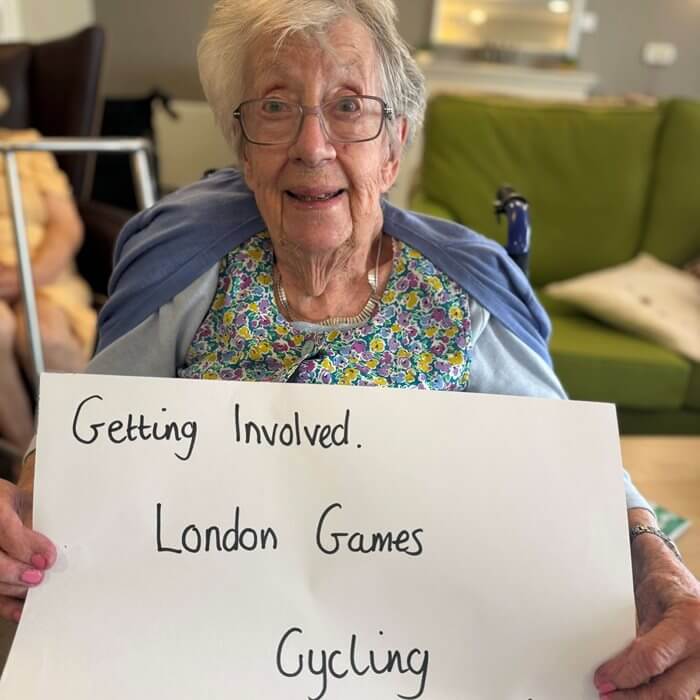 Getting Involved.
London Games
Cycling